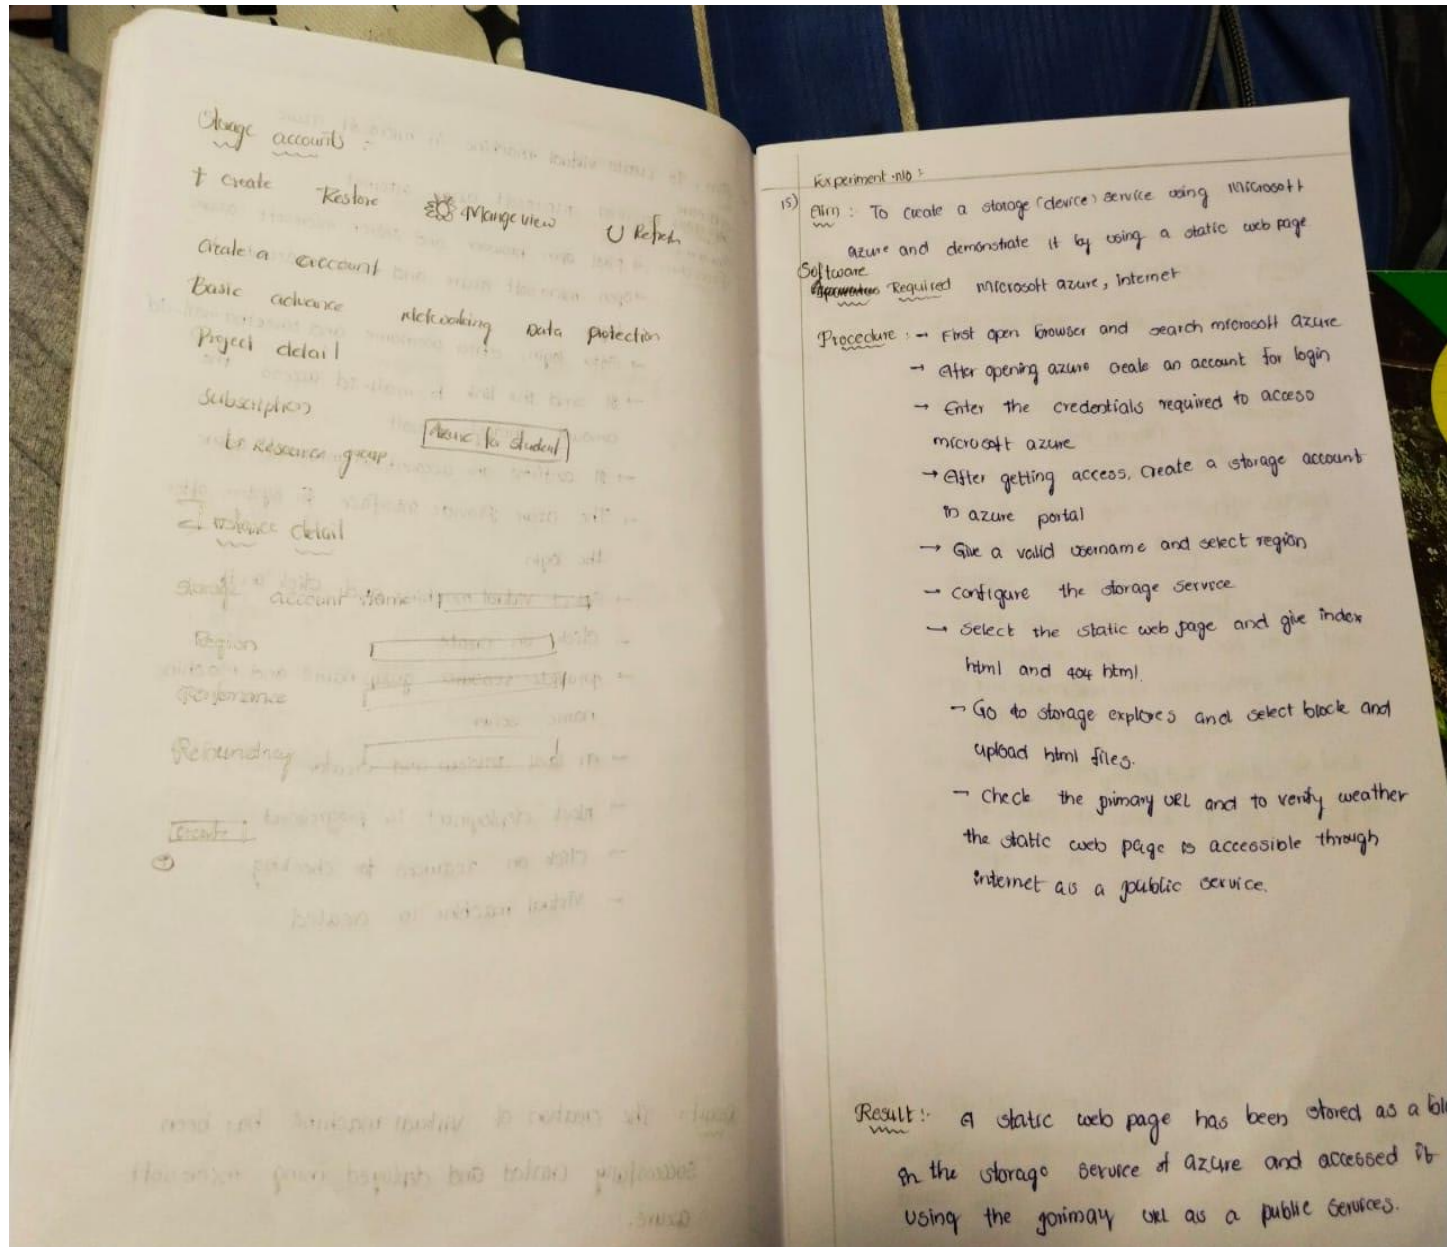 Storage accounts :-
+ Create Restore Mange view Refresh
Create a account
Basic advance Networking Data protection
Project detail
Subscription
Azure for student
Resource group
Instance detail
Storage account name
Region
Performance
Redundney
Create
Experiment -no :
15) Aim : To create a storage (device) service using Microsoft
azure and demonstrate it by using a static web page
Software
Required microsoft azure, internet
Procedure : → First open browser and search microsoft azure
→ After opening azure create an account for login
→ Enter the credentials required to access
microsoft azure
→ After getting access, create a storage account
in azure portal
→ Give a valid username and select region
→ configure the storage service
→ select the static web page and give index
html and 404 html.
→ Go to storage explores and select block and
upload html files.
→ check the primary URL and to verify weather
the static web page is accessible through
internet as a public service.
Result :- A static web page has been stored as a
in the storage service of azure and accessed it
using the gorimay URL as a public services.